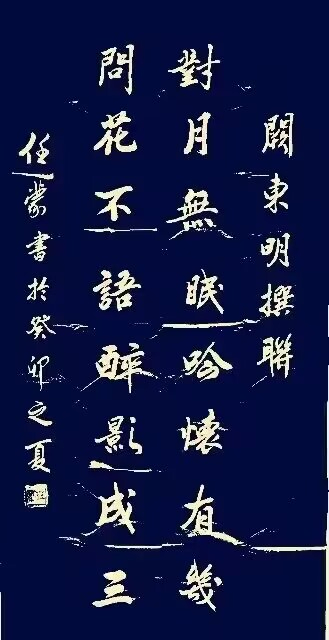 關東明撰聯
對月無眠吟懷有幾
問花不語醉影成三
任蒙書於癸卯之夏